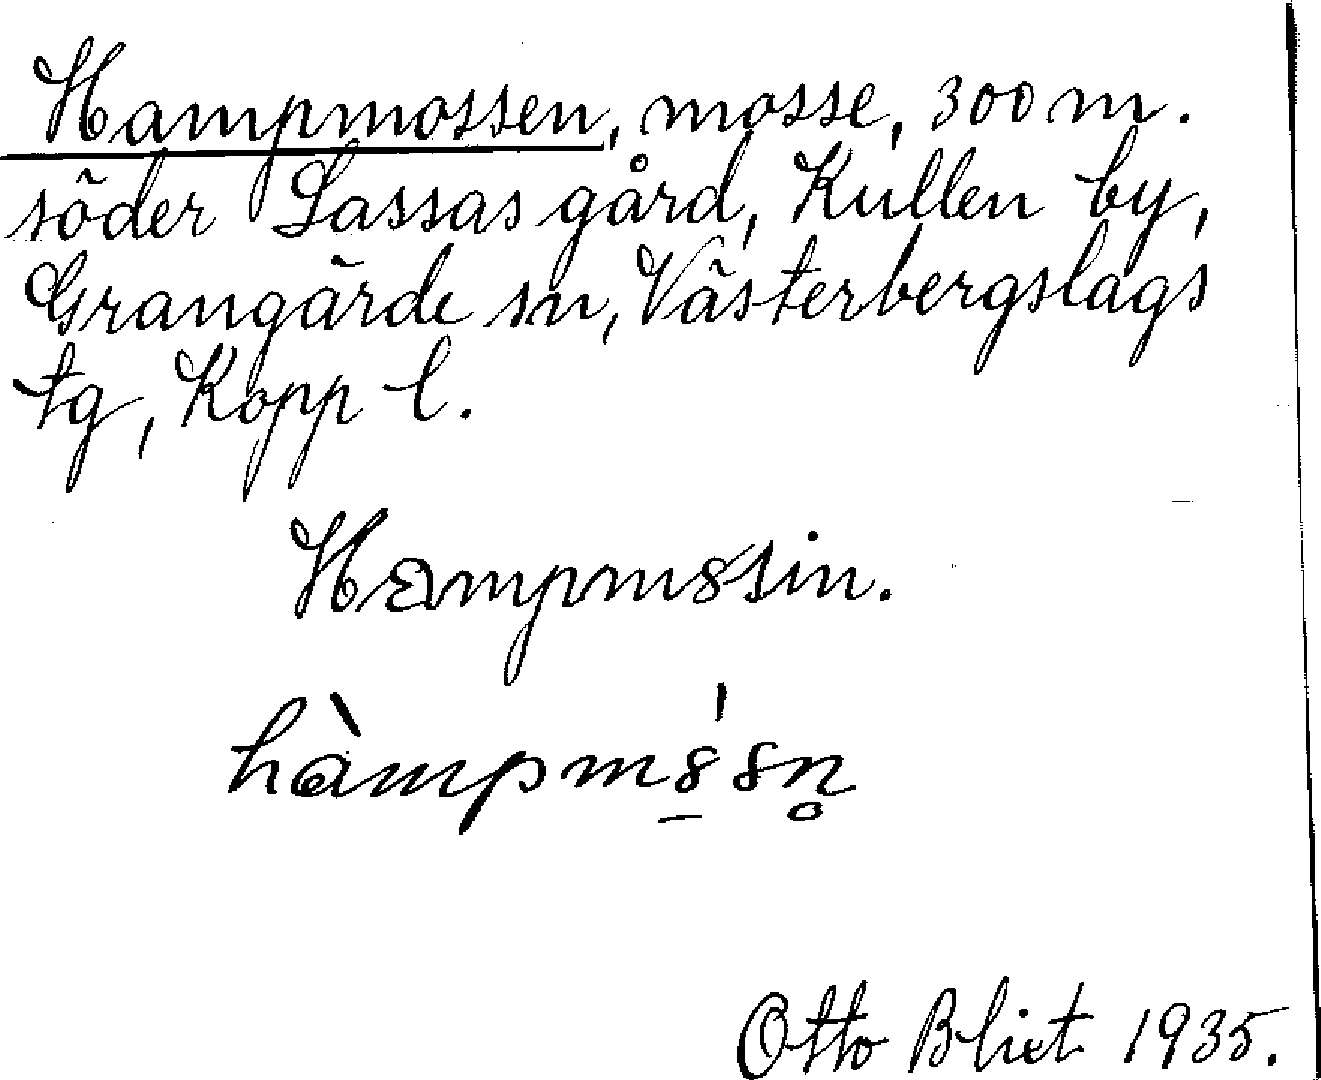 Hampmossen, mosse, 300 m.
söder Lassas gård, Kullen by,
Grangärde sn, Västerbergslags
tg, Kopp l.
Hampm8sin.
hàmpm8̱́sn̥
Otto Blixt 1935.